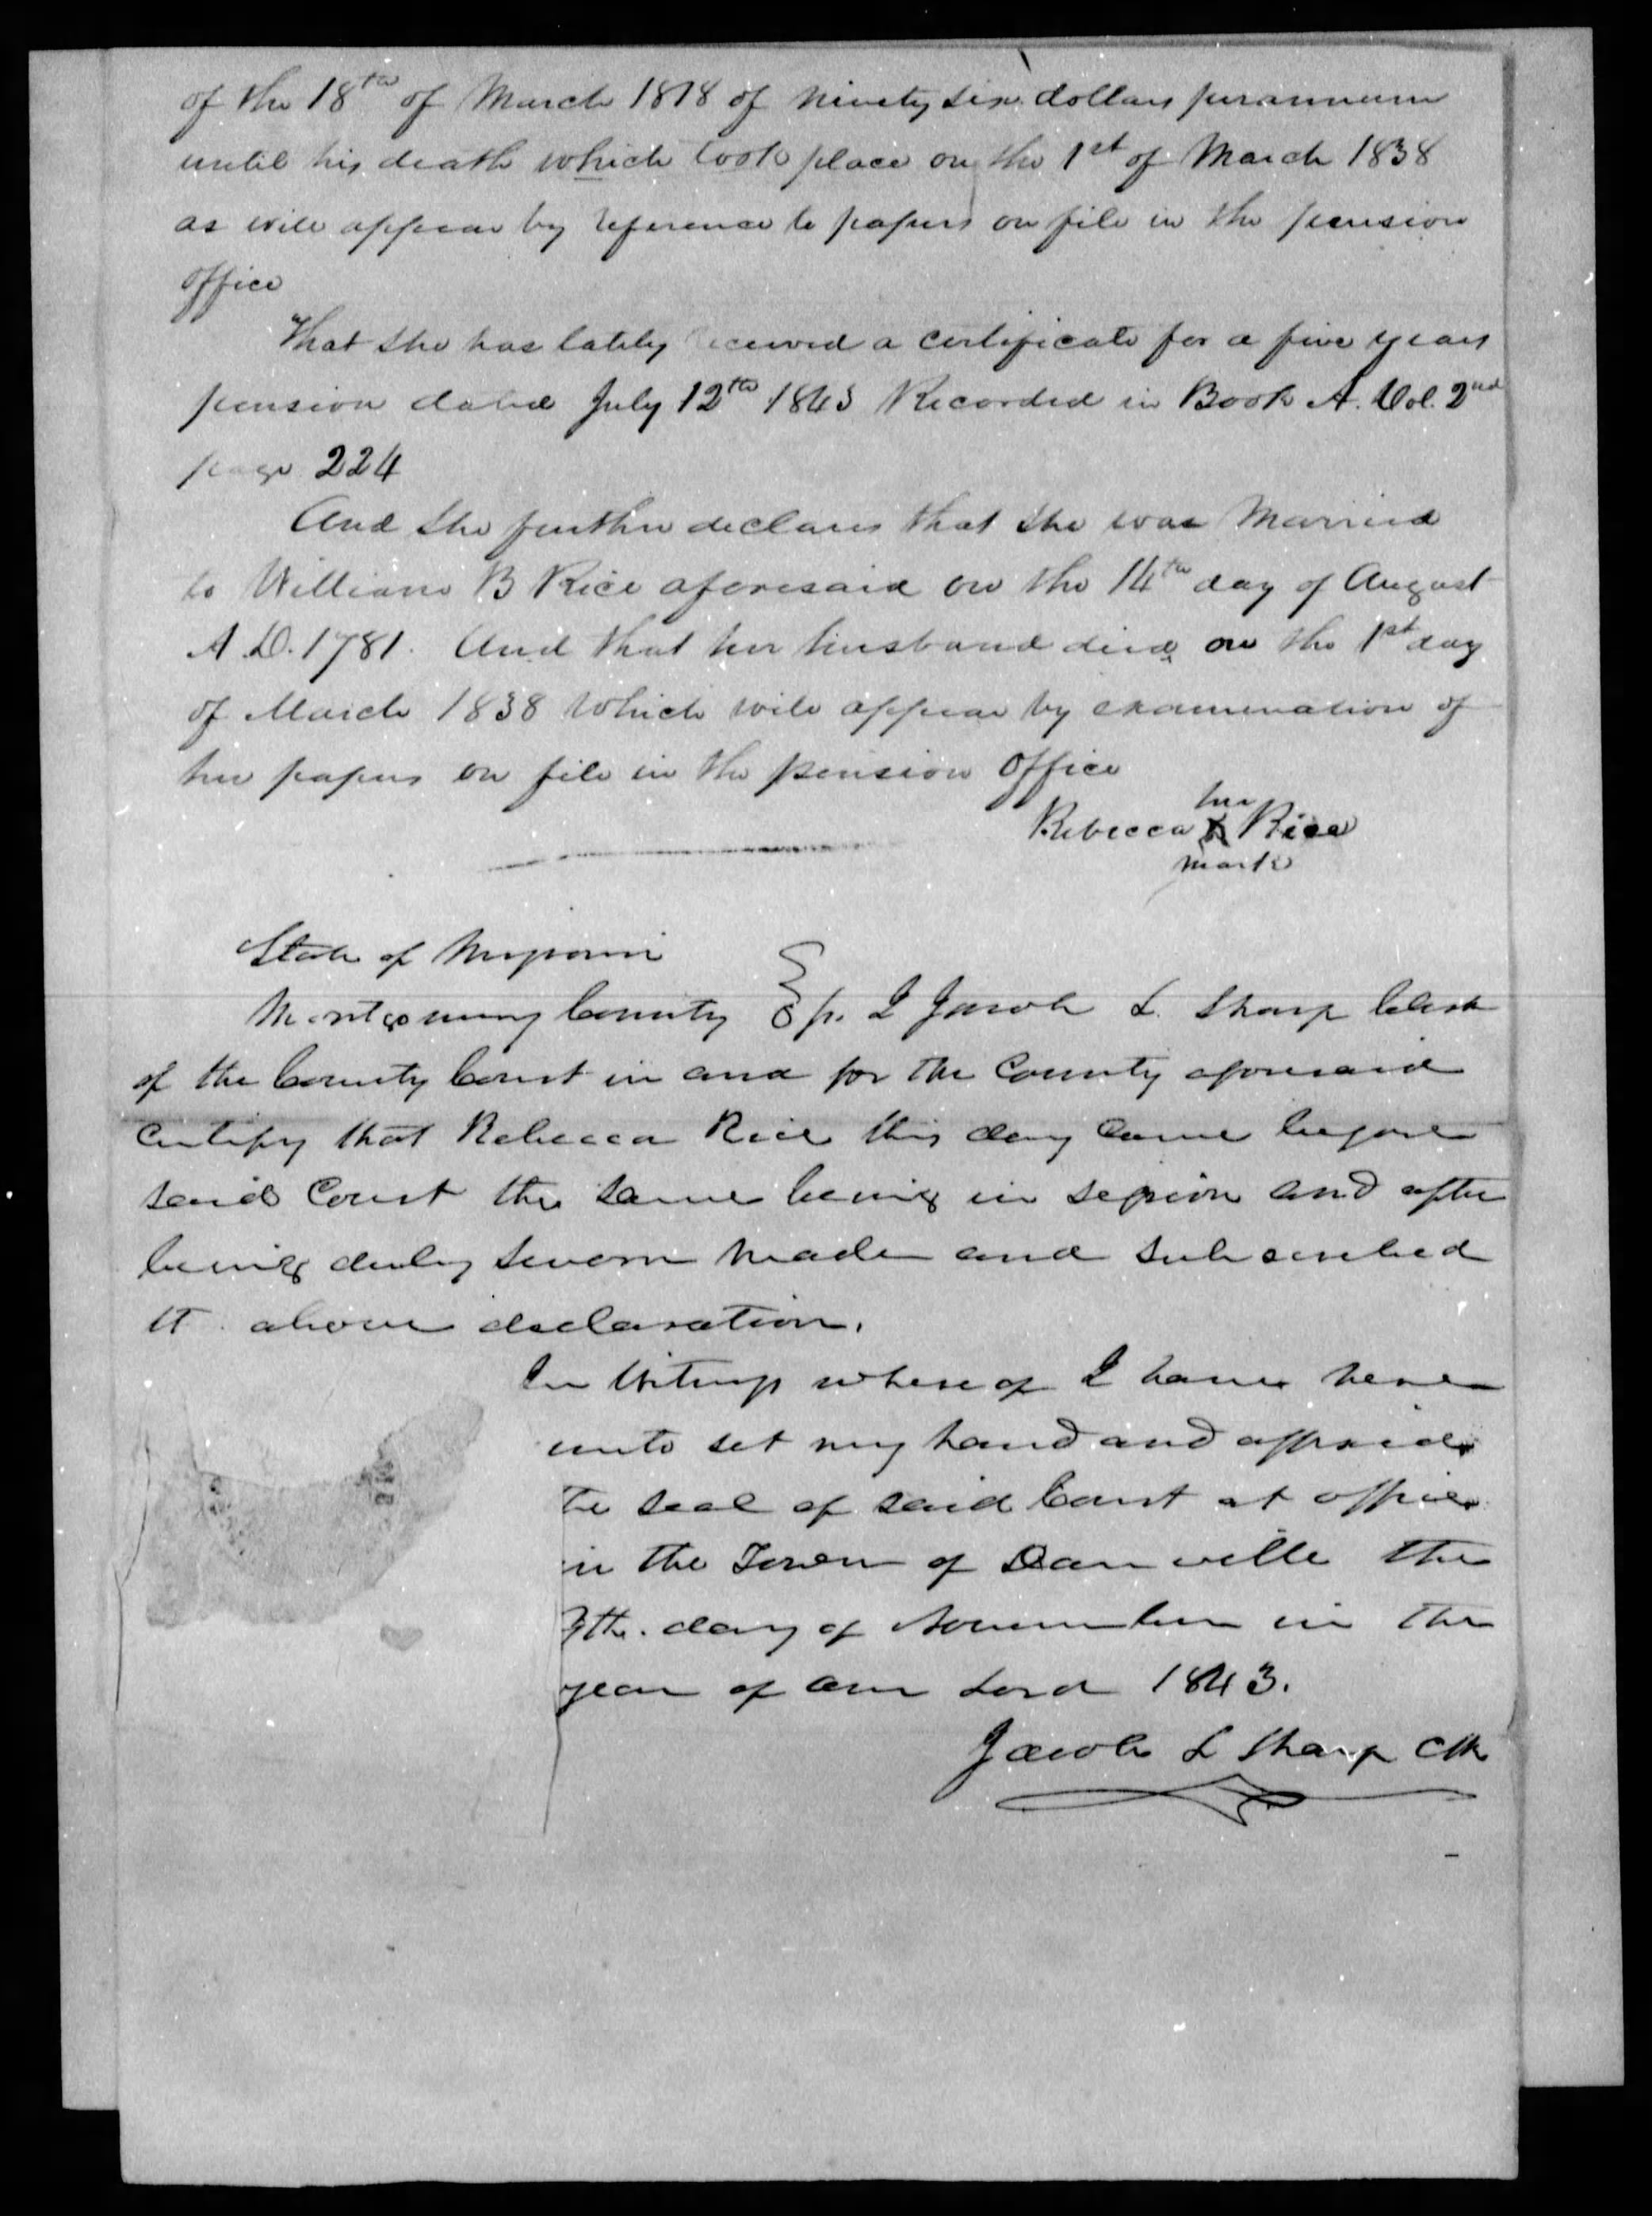 of the 18th of March 1818 of ninety six dollars per annum
until his death which took place on the 1st of March 1838
as will appear by reference to papers on file in the pension
office
That she has lately received a certificate for a five years
pension dated July 12th 1843 Recorded in Book A. Vol. 2nd
page 224
And she further declares that she was Married
to William B Rice aforesaid on the 14th day of August
A.D. 1781. And that her husband died on the 1st day
of March 1838 which will appear by examination of
her papers on file in the pension office
her
Rebecca X Rice
mark
State of Missouri
Montgomery County Ss. I Jacob L. Sharp Clerk
of the County Court in and for the County aforesaid
Certify that Rebecca Rice this day Came before
said Court the same being in session and after
being duly sworn made and subscribed
the above declaration.
In Witness where of I have here
unto set my hand and affixed
the seal of said Court at office
in the Town of Danville the
7th. day of November in the
year of our Lord 1843.
Jacob L Sharp Clk